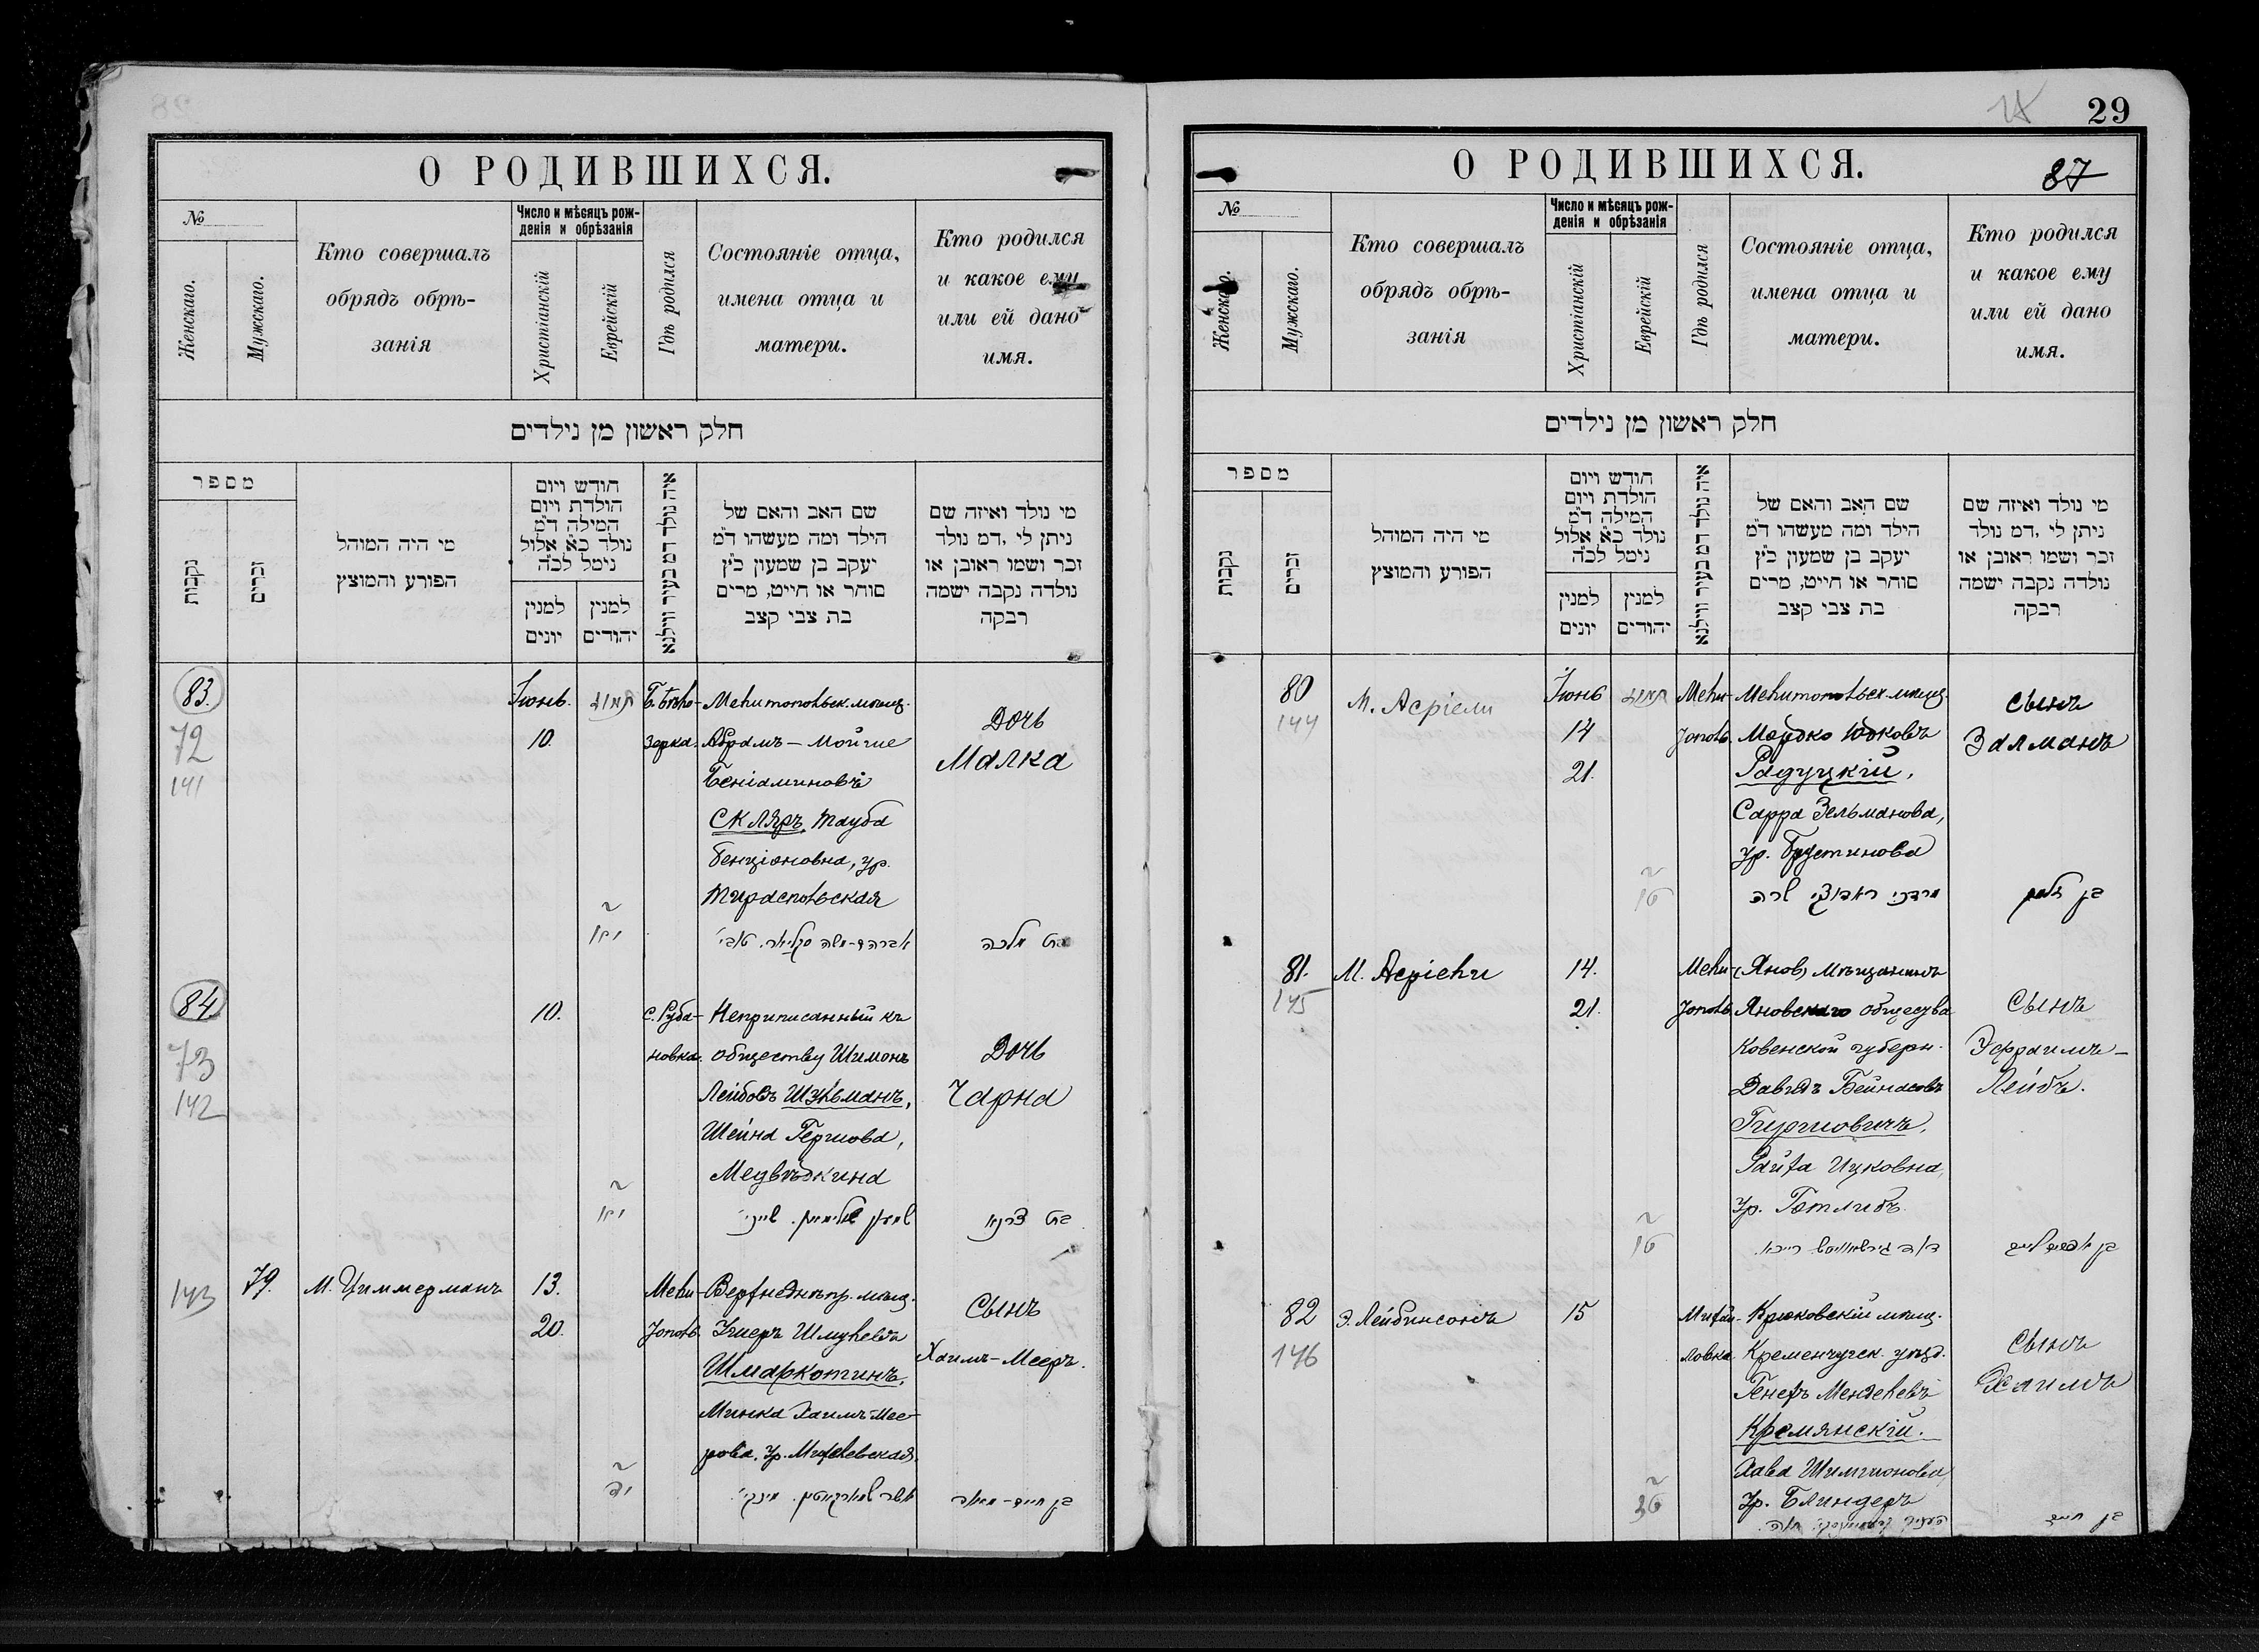 29
О РОДИВШИХСЯ.
№
Женскаго.
Мужскаго.
Кто совершалъ
обрядъ обрѣ-
занія
Число и мѣсяцъ рож-
денія и обрѣзанія
Христіанскій
Еврейскій
Гдѣ родился
Состояніе отца,
имена отца и
матери.
Кто родился
и какое ему
или ей дано
имя.
חלק ראשון מן נילדים
מספר
נקבות
זכרים
מי היה המוהל
הפורע והמוצץ
חודש ויום
הולדת ויום
המילה ד״מ
נולד כ״א אלול
נימל לכ״ה
למנין
יונים
למנין
יהודים
איה נולד דמ בעיר ווילנא
שם האב והאם של
הילד ומה מעשהו ד״מ
יעקב בן שמעון כ״ץ
סוחר או חייט, מרים
בת צבי קצב
מי נולד ואיזה שם
ניתן לי ,דמ נולד
זכר ושמו ראובן או
נולדה נקבה ישמה
רבקה
83.
72
141
Іюнь.
10.
תמוז
Б. Бѣло-
зерка.
Мелитопольск. мѣщ.
Абрамъ-Мойше
Беніаминовъ
Скляръ, Тауба
Бенціоновна, ур.
Тираспольская
Дочь
Малка
בת מלכה
84.
73
142
10.
с. Руба-
новка.
Неприписанный къ
обществу Шимонъ
Лейбовъ Шульманъ,
Шейна Гершова,
Медвѣдкина
Дочь
Чарна
בת צרניא
79.
143
М. Циммерманъ
13.
20.
Мели-
тополь.
Верхнеднѣпр. мѣщ.
Ушеръ Шмулевъ
Шмаркотинъ,
Минка Хаимъ-Мее-
рова, ур.
Сынъ
Хаимъ-Мееръ.
בן חיים-מאיר
О РОДИВШИХСЯ.
87
№
Женскаго.
Мужскаго.
Кто совершалъ
обрядъ обрѣ-
занія
Число и мѣсяцъ рож-
денія и обрѣзанія
Христіанскій
Еврейскій
Гдѣ родился
Состояніе отца,
имена отца и
матери.
Кто родился
и какое ему
или ей дано
имя.
חלק ראשון מן נילדים
מספר
נקבות
זכרים
מי היה המוהל
הפורע והמוצץ
חודש ויום
הולדת ויום
המילה ד״מ
נולד כ״א אלול
נימל לכ״ה
למנין
יונים
למנין
יהודים
איה נולד דמ בעיר ווילנא
שם האב והאם של
הילד ומה מעשהו ד״מ
יעקב בן שמעון כ״ץ
סוחר או חייט, מרים
בת צבי קצב
מי נולד ואיזה שם
ניתן לי ,דמ נולד
זכר ושמו ראובן או
נולדה נקבה ישמה
רבקה
80
144
М. Асріели
Іюнь
14
21.
תמוז
Мели-
тополь.
Мелитопольск. мѣщ.
Мордко Юдковъ
Радуцкій,
Сарра Зельманова,
ур. Брустинова
сынъ
Залманъ
בן זלמן
81.
145
М. Асріели
14.
21.
Мели-
тополь
(Янов) Мѣщанинъ
Яновскаго общества
Ковенской губерн.
Давидъ Бейнасовъ
Гиршовичъ,
Райха Ицковна,
ур. Готлибъ
Сынъ
Эфраимъ-
Лейбъ.
82
146
Э. Лейбинсонъ
15
Михай-
ловка.
Крюковскій мѣщ.
Кременчугск. уѣзд.
Генехъ Менделевъ
Кремянскій.
Хава Шимшонова,
Ур. Блиндеръ
Сынъ
Хаимъ
בן חיים